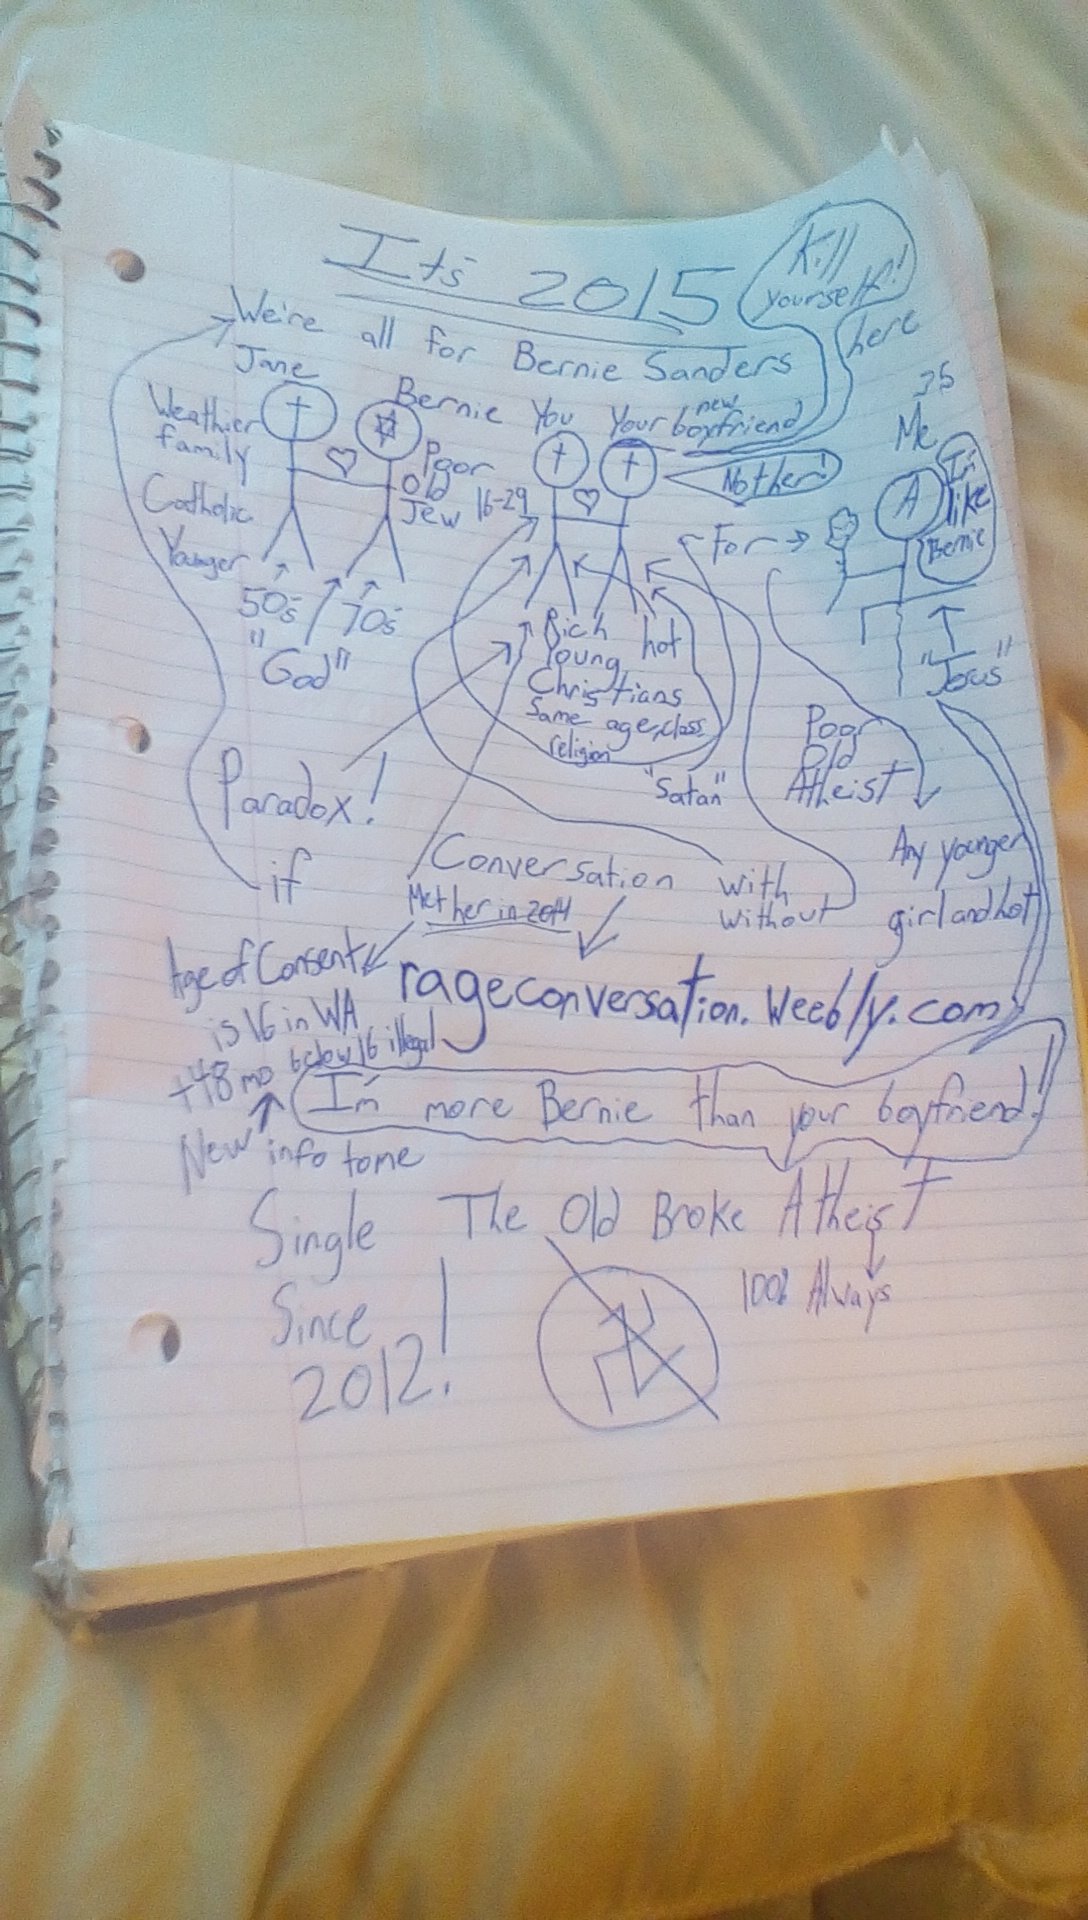 Its 2015
Kill
yourself!
here
We're all for Bernie Sanders
Jane
Bernie
You
Your new boyfriend
35
Me
Weathier
family
Catholic
Younger
Poor
Old
Jew
16-29
No ther!
For
A
I'm
like
Bernie
50s
70s
"God"
Rich
Young
hot
Christians
Same age, class
religion
"Satan"
"Jesus"
Poor
Old
Atheist
Paradox!
if
Conversation
with
without
Any younger
girl and hot
Met her in 2014
Age of Consent
is 16 in WA
+48 mo below 16 illegal
rageconversation.weebly.com
I'm more Bernie than your boyfriend!
New info to me
Single
Since
2012!
The Old Broke Atheist
100% Always